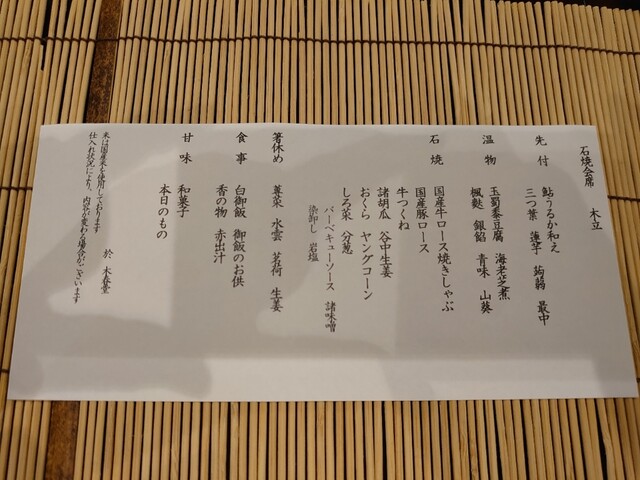 石焼会席 木立
先付 鮎うるか和え
三つ葉 蓮芋 蒟蒻 最中
温物 玉蜀黍豆腐 海老芝煮
楓麩 銀餡 青味 山葵
石焼 国産牛ロース焼きしゃぶ
国産豚ロース
牛つくね
諸胡瓜 谷中生姜
おくら ヤングコーン
しろ菜 分葱
バーベキューソース 諸味噌
染卸し 岩塩
箸休め 蓴菜 水雲 茗荷 生姜
食事 白御飯 御飯のお供
香の物 赤出汁
甘味 和菓子
本日のもの
於 木春堂
米は国産米を使用しております
仕入れ状況により、内容が変わる場合がございます